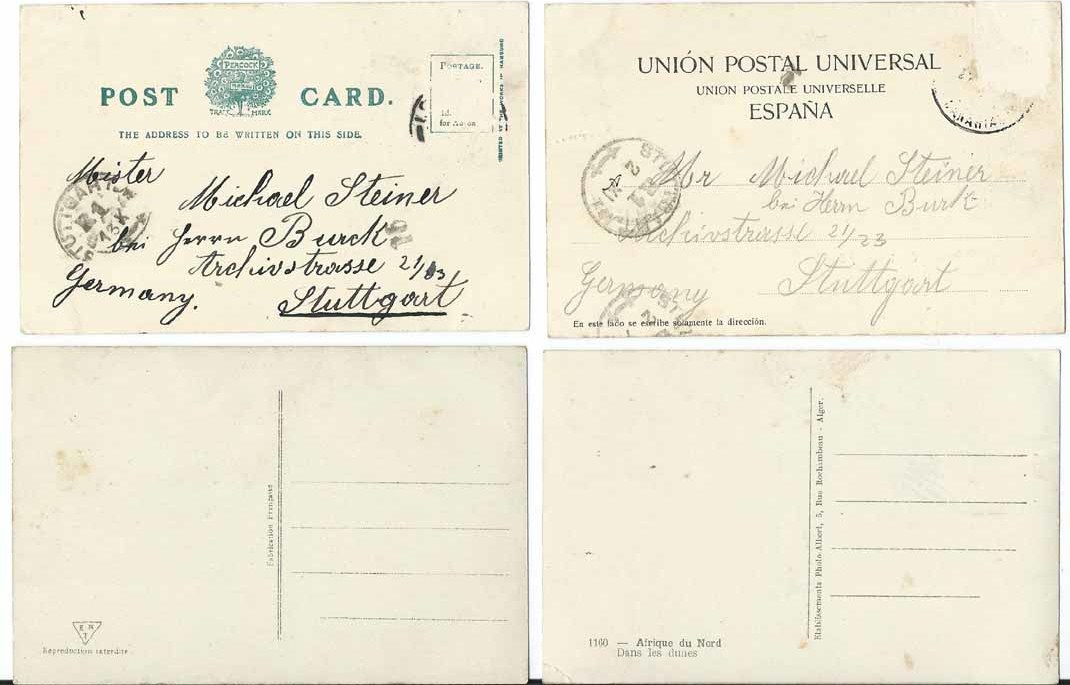 PEACOCK
BRAND
TRADE MARK
POST CARD.
THE ADDRESS TO BE WRITTEN ON THIS SIDE.
POSTAGE.
1d.
for
PRINTED AT THE WORKS IN HAMBURG
STUTTGART
Mister
Michael Steiner
bei Herrn Burck
Archivstrasse 21/23
Germany. Stuttgart
UNIÓN POSTAL UNIVERSAL
UNION POSTALE UNIVERSELLE
ESPAÑA
Mr Michael Steiner
bei Herrn Burk
Archivstrasse 21/23
Germany Stuttgart
En este lado se escribe solamente la dirección.
Fabrication Française
E R
T
Reproduction interdite
Etablissements Photo-Albert, 5, Rue Rochambeau - Alger.
1160 — Afrique du Nord
Dans les dunes